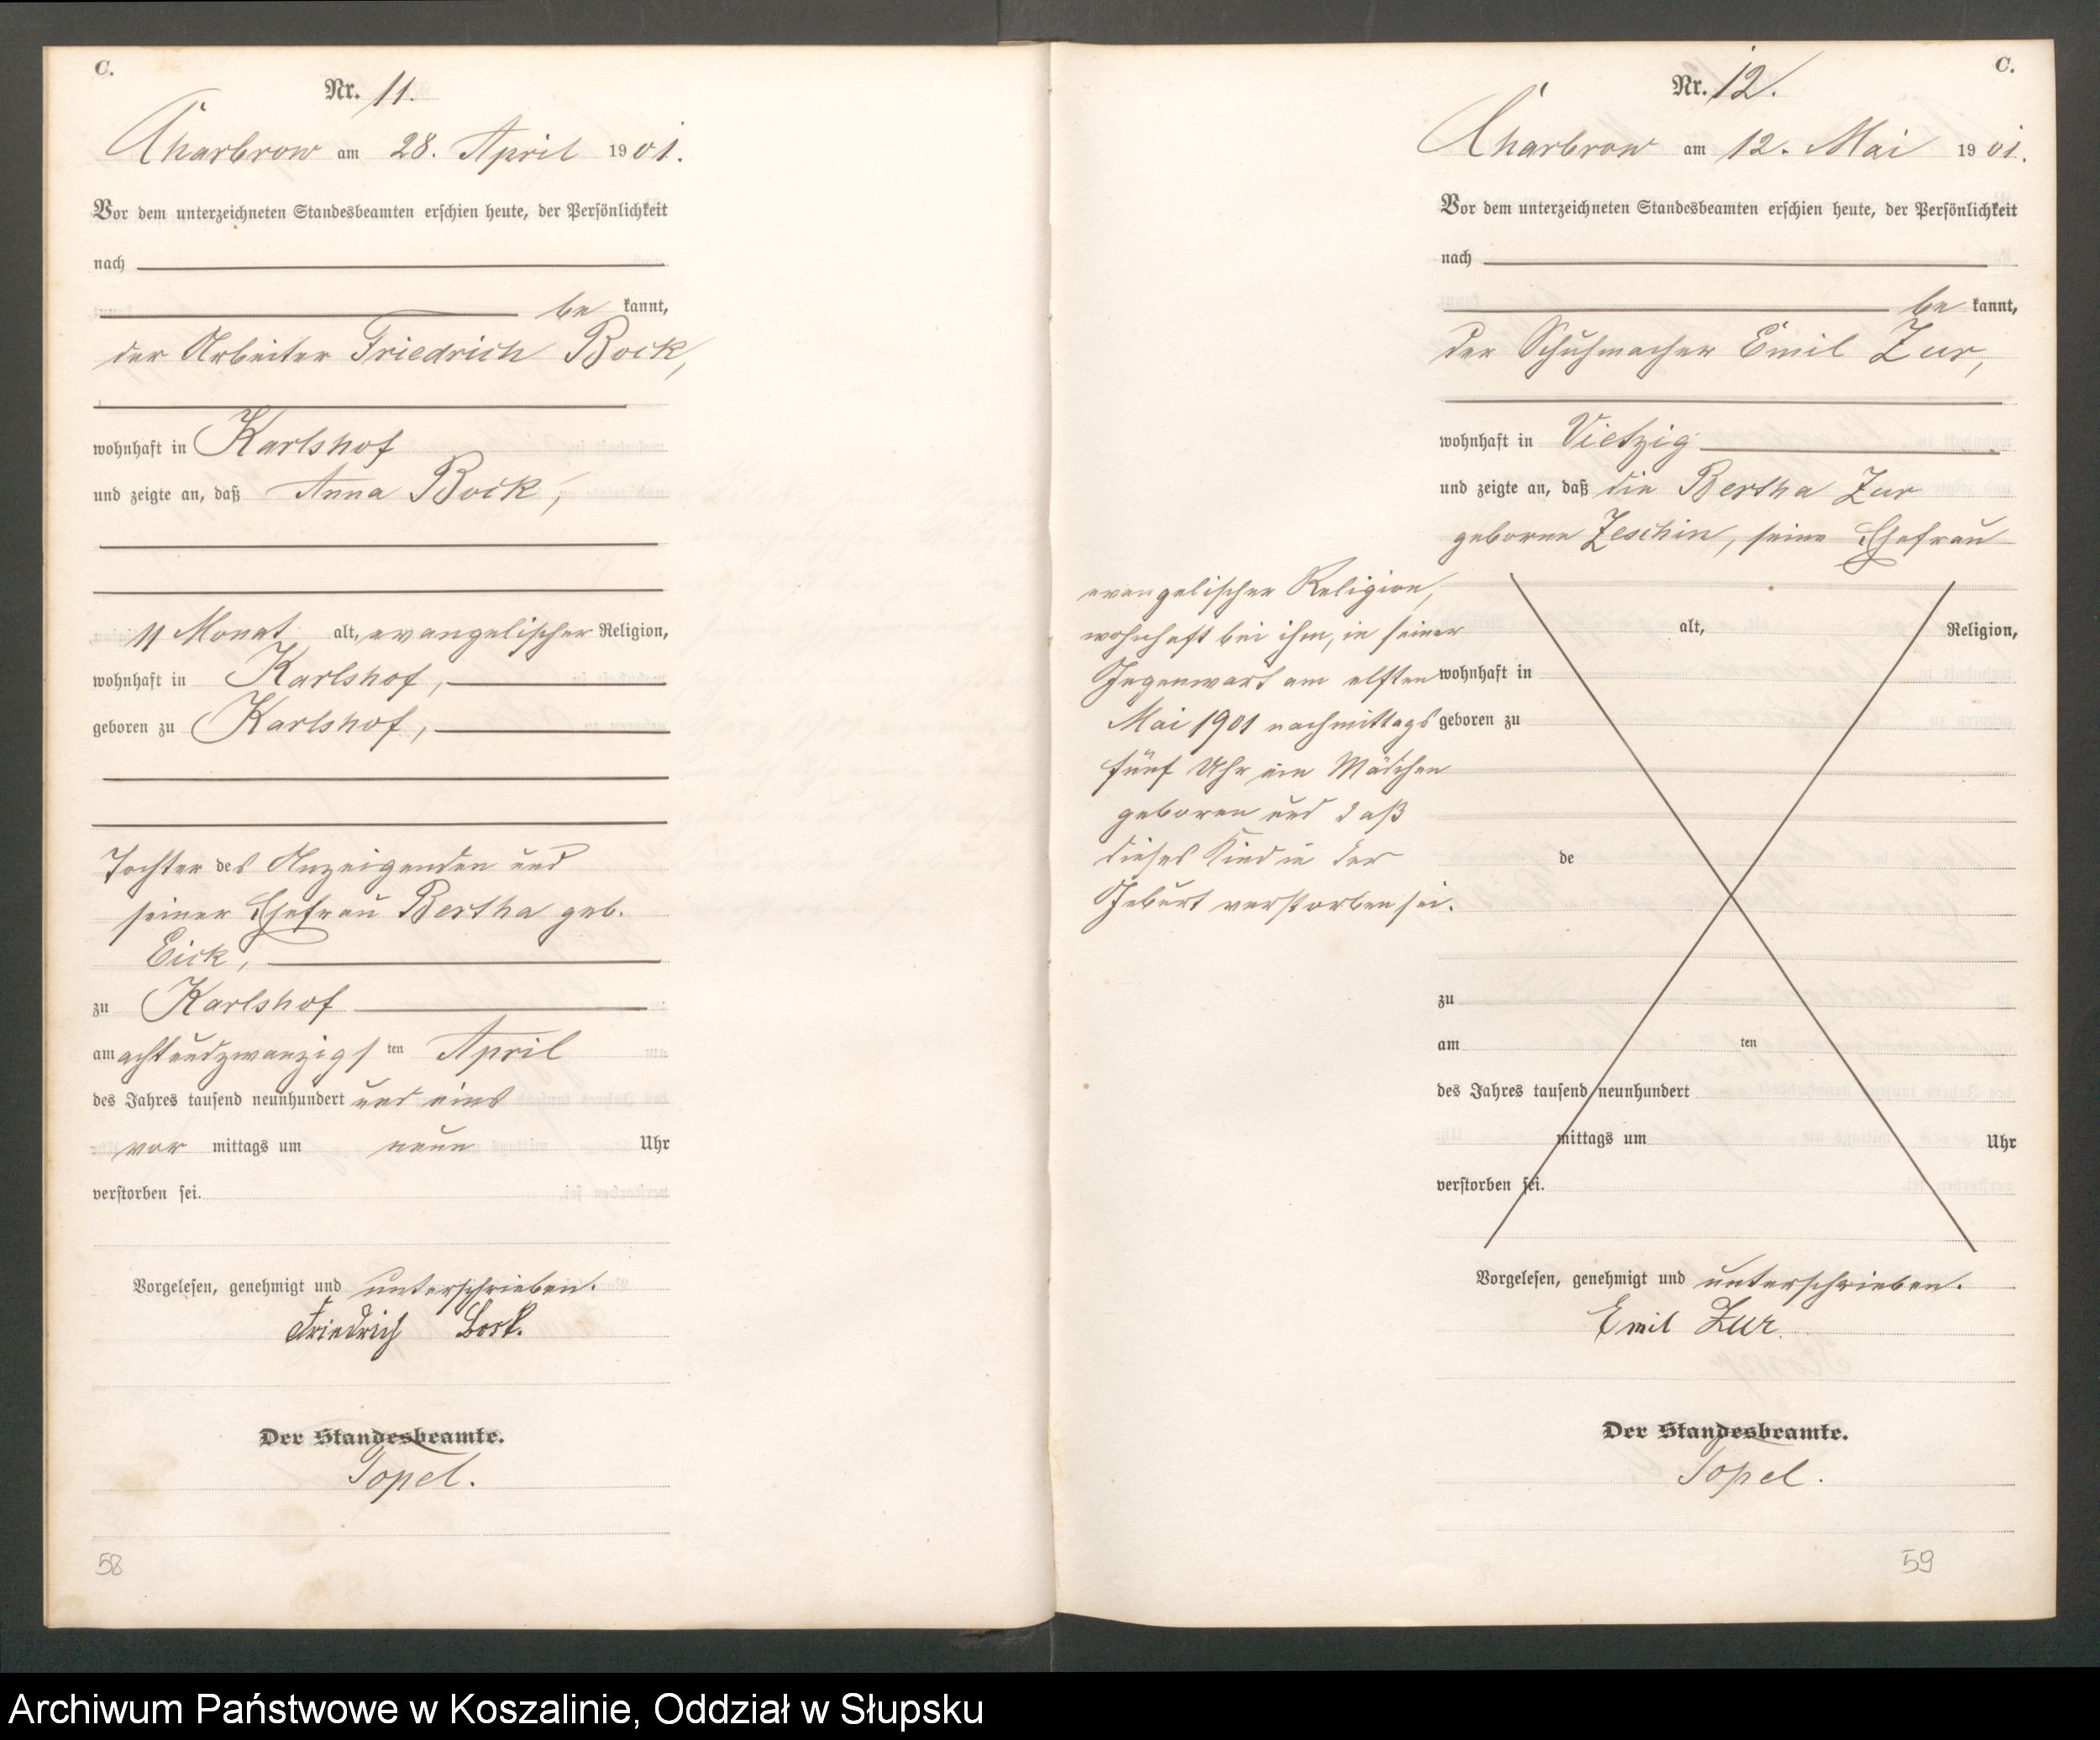 C.
Nr. 11.
Charbrow am 28. April 1901.
Vor dem unterzeichneten Standesbeamten erschien heute, der Persönlichkeit
nach
be kannt,
der Arbeiter Friedrich Bock,
wohnhaft in Karlshof
und zeigte an, daß Anna Bock,
11 Monat alt, evangelischer Religion,
wohnhaft in Karlshof,
geboren zu Karlshof,
Tochter des Anzeigenden und
seiner Ehefrau Bertha geb.
Eick,
zu Karlshof
am achtundzwanzigsten April
des Jahres tausend neunhundert und eins
vor mittags um neun Uhr
verstorben sei.
Vorgelesen, genehmigt und unterschrieben.
Friedrich Bock.
Der Standesbeamte.
Topel.
58
C.
Nr. 12.
Charbrow am 12. Mai 1901.
Vor dem unterzeichneten Standesbeamten erschien heute, der Persönlichkeit
nach
be kannt,
der Schuhmacher Emil Zur,
wohnhaft in Vietzig
und zeigte an, daß die Bertha Zur
geborne Zeschin, seine Ehefrau
evangelischer Religion,
wohnhaft bei ihm, in seiner
Gegenwart am elften
Mai 1901 nachmittags
fünf Uhr ein Mädchen
geboren und daß
dieses Kind in der
Geburt verstorben sei.
alt, Religion,
wohnhaft in
geboren zu
de
zu
am ten
des Jahres tausend neunhundert
mittags um Uhr
verstorben sei.
Vorgelesen, genehmigt und unterschrieben.
Emil Zur.
Der Standesbeamte.
Topel.
59
Archiwum Państwowe w Koszalinie, Oddział w Słupsku